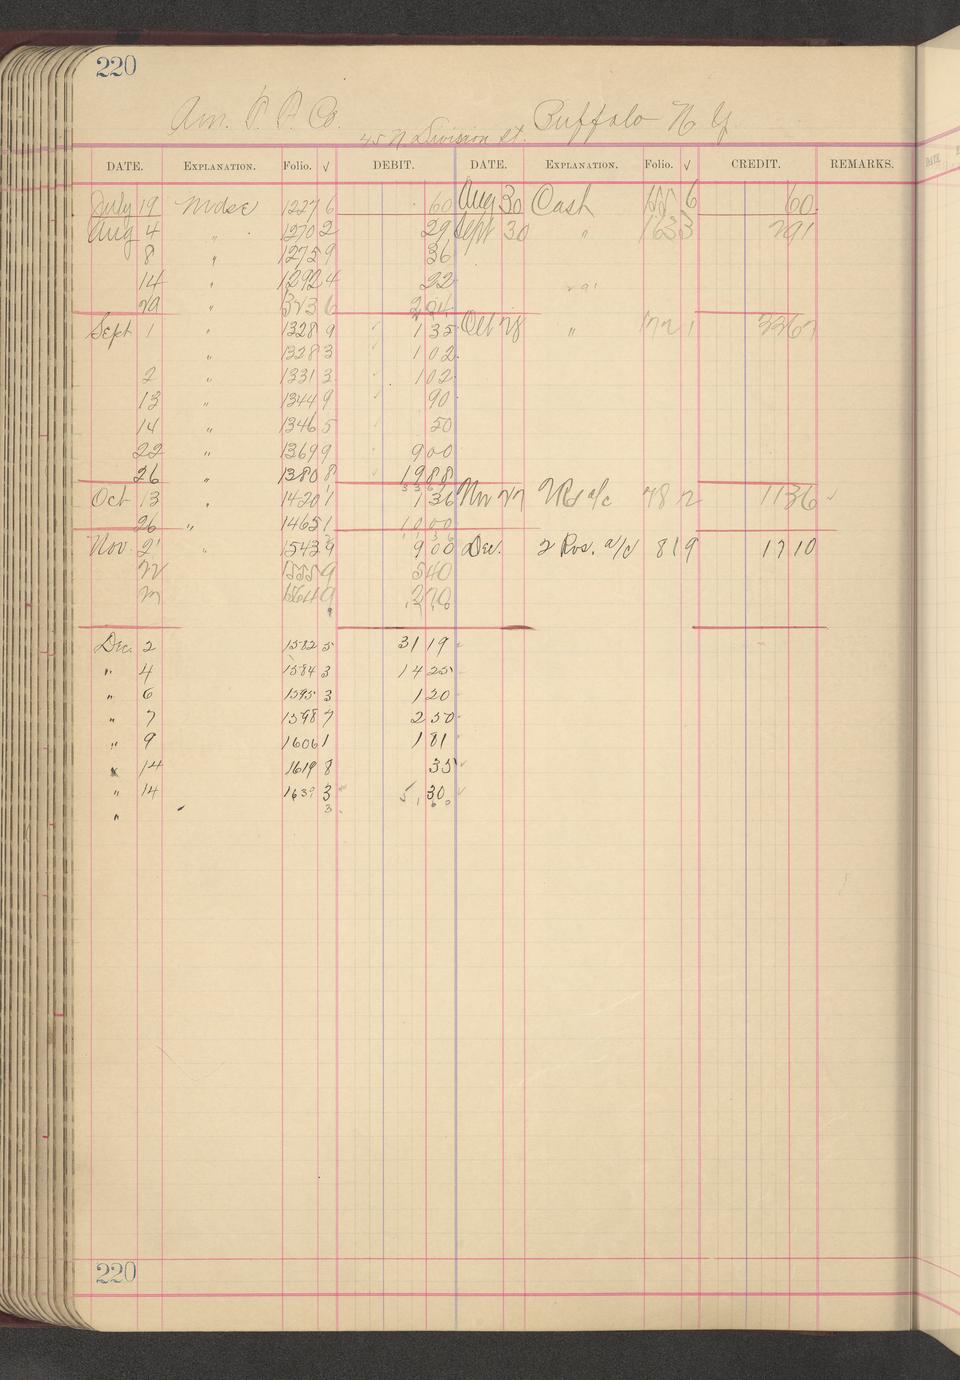 220
Am. P. P. Co. Buffalo N. Y.
45 N Division St.
DATE. EXPLANATION. FOLIO. √ DEBIT. DATE. EXPLANATION. FOLIO. √ CREDIT. REMARKS.
July 19 Mdse 1227 6 60 Aug 30 Cash 155 6 60
Aug 4 " 1270 2 29 Sept 30 " 163 3 291
8 " 1275 9 36
14 " 1292 4 22
29 " 1323 6 2 04
291
Sept 1 " 1328 9 1 35 Oct 28 " 172 1 3367
" 1328 3 1 02
2 " 1331 3 1 02
13 " 1344 9 90
14 " 1346 5 50
22 " 1369 9 9 00
26 " 1380 8 19 88
33 67
Oct 13 " 1420 1 1 36 Nov 27 a/c 78 2 1136
26 " 1465 1 10 00
11 36
Nov. 21 " 1543 9 9 00 Dec. 2 Ros. a/c 81 9 17 10
22 1555 9 5 40
1564 9 2 70
Dec. 2 1582 5 31 19
" 4 1584 3 14 25
" 6 1595 3 1 20
" 7 1598 7 2 50
" 9 1606 1 1 81
" 14 1619 8 35
" 14 1639 3 30
"
220